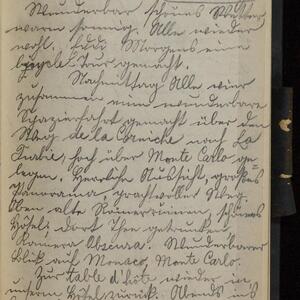 Wunderbar schönes Wetter
warm sonnig. Alle wieder
wohl. Früh Morgens eine
Tour gemacht.
Nachmittag Alle vier
zusammen eine wunderbare
Spazierfahrt gemacht über den
Weg de la Corniche nach La
Turbie, hoch über Monte Carlo ge
legen. Herrliche Aussicht, großes
Panorama, prachtvoller Weg.
Oben alte Römerruinen, schönes
Hôtel; dort Thee getrunken
Kamera Obscura. Wunderbarer
Blick auf Monaco, Monte Carlo.
Zur table d'hôte wieder in
unserm Hôtel zurück. Abends